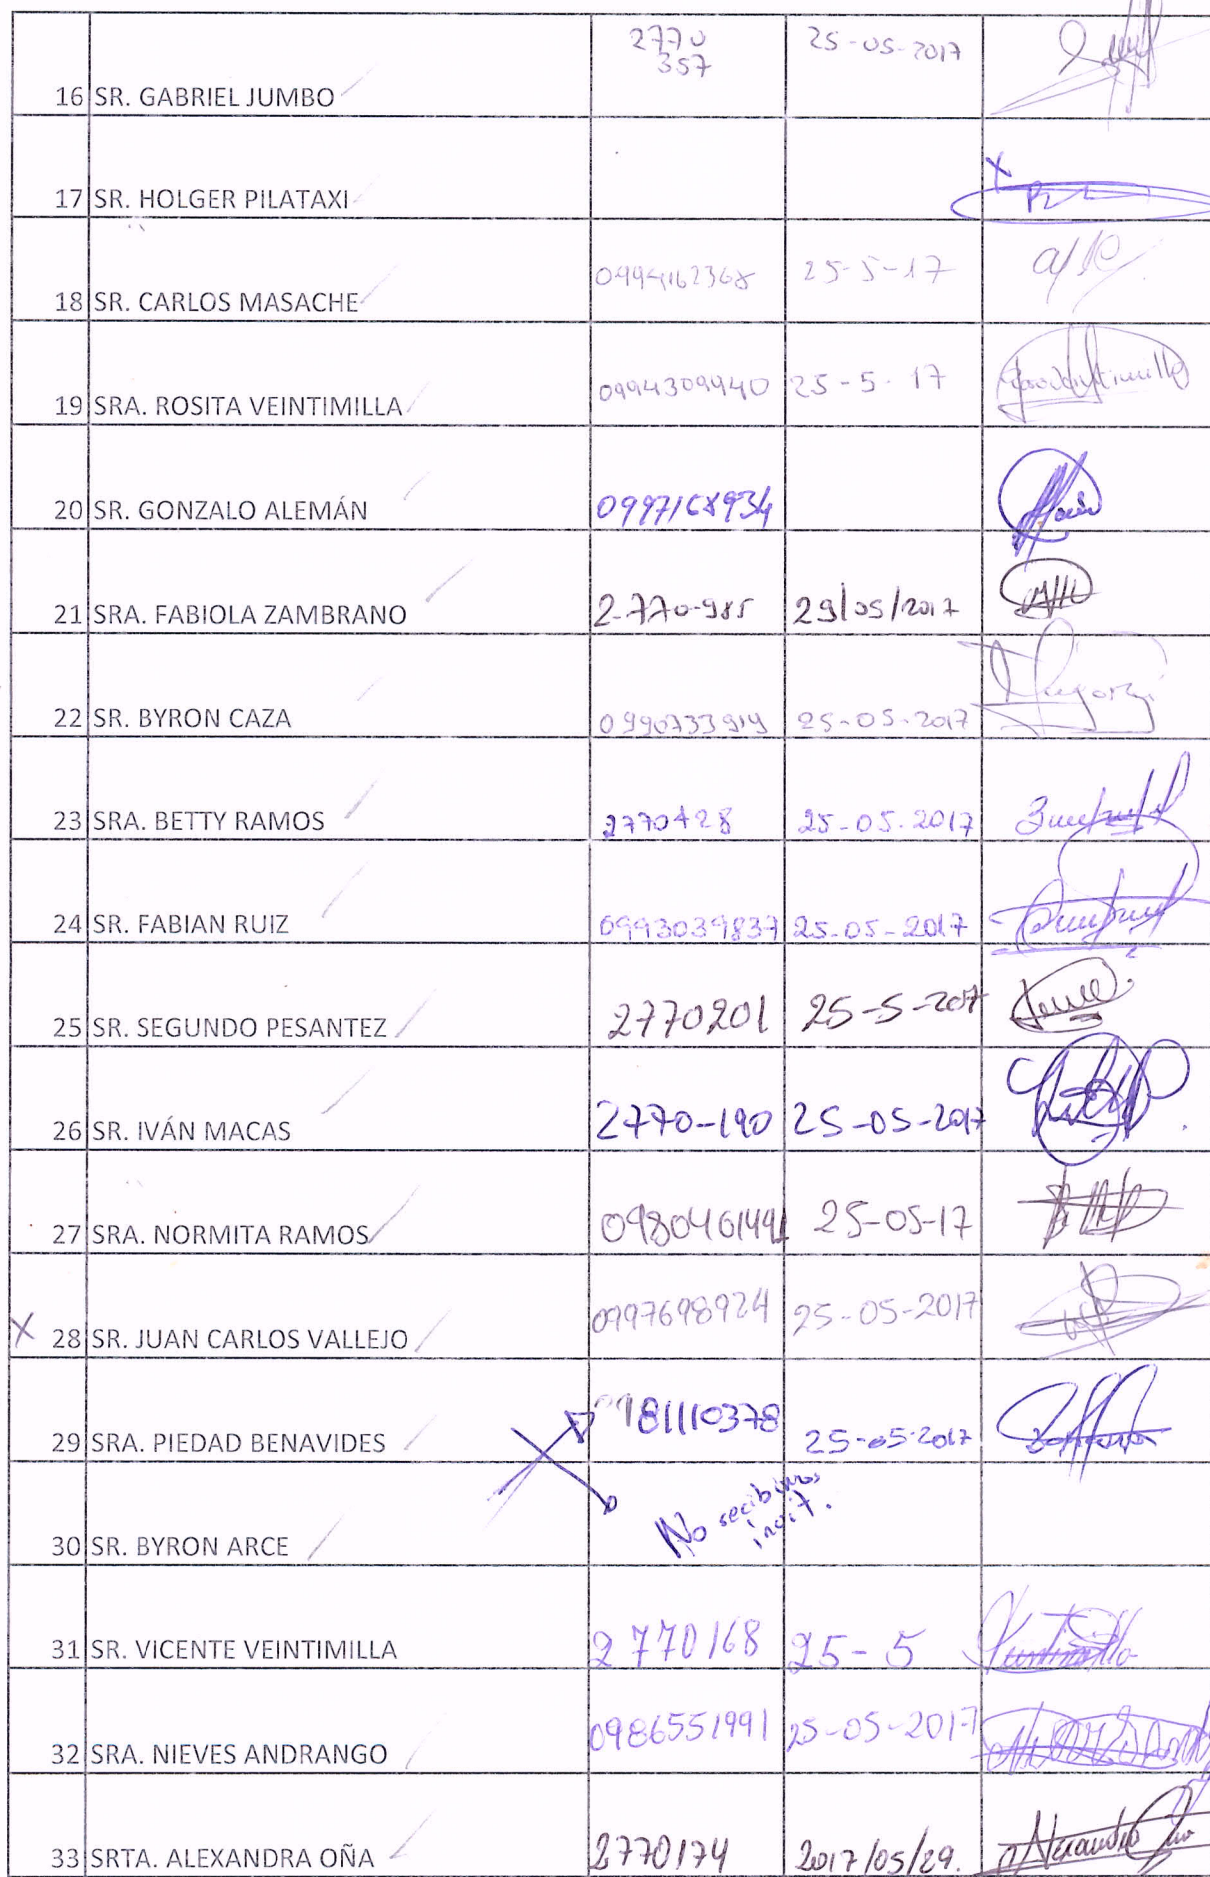 16 SR. GABRIEL JUMBO 2770 357 25-05-2017
17 SR. HOLGER PILATAXI
18 SR. CARLOS MASACHE 0994162368 25-5-17
19 SRA. ROSITA VEINTIMILLA 0994309940 25-5-17
20 SR. GONZALO ALEMÁN 0997168934
21 SRA. FABIOLA ZAMBRANO 2-770-985 29/05/2017
22 SR. BYRON CAZA 0990733919 25-05-2017
23 SRA. BETTY RAMOS 2770428 25-05-2017
24 SR. FABIAN RUIZ 0993039837 25-05-2017
25 SR. SEGUNDO PESANTEZ 2770201 25-5-2017
26 SR. IVÁN MACAS 2770-190 25-05-2017
27 SRA. NORMITA RAMOS 25-05-17
X 28 SR. JUAN CARLOS VALLEJO 0997698924 25-05-2017
29 SRA. PIEDAD BENAVIDES 0981110378 25-05-2017
30 SR. BYRON ARCE No recibimos invit.
31 SR. VICENTE VEINTIMILLA 2770168 25-5
32 SRA. NIEVES ANDRANGO 0986551991 25-05-2017
33 SRTA. ALEXANDRA OÑA 2770174 2017/05/29.